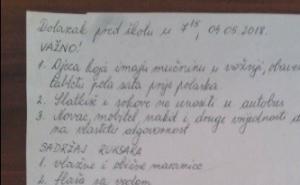 Dolazak pred školu u 7¹⁵, 09.05.2018.
VAŽNO!
1. Djeca koja imaju mučninu u vožnji, obavez
tabletu pola sata prije polaska.
2. Slatkiše i sokove ne unositi u autobus
3. Novac, mobitel, nakit i druge vrijednosti d
na vlastitu odgovornost
SADRŽAJ RUKSAKA
1. vlažne i obične maramice
2. flaša sa vodom